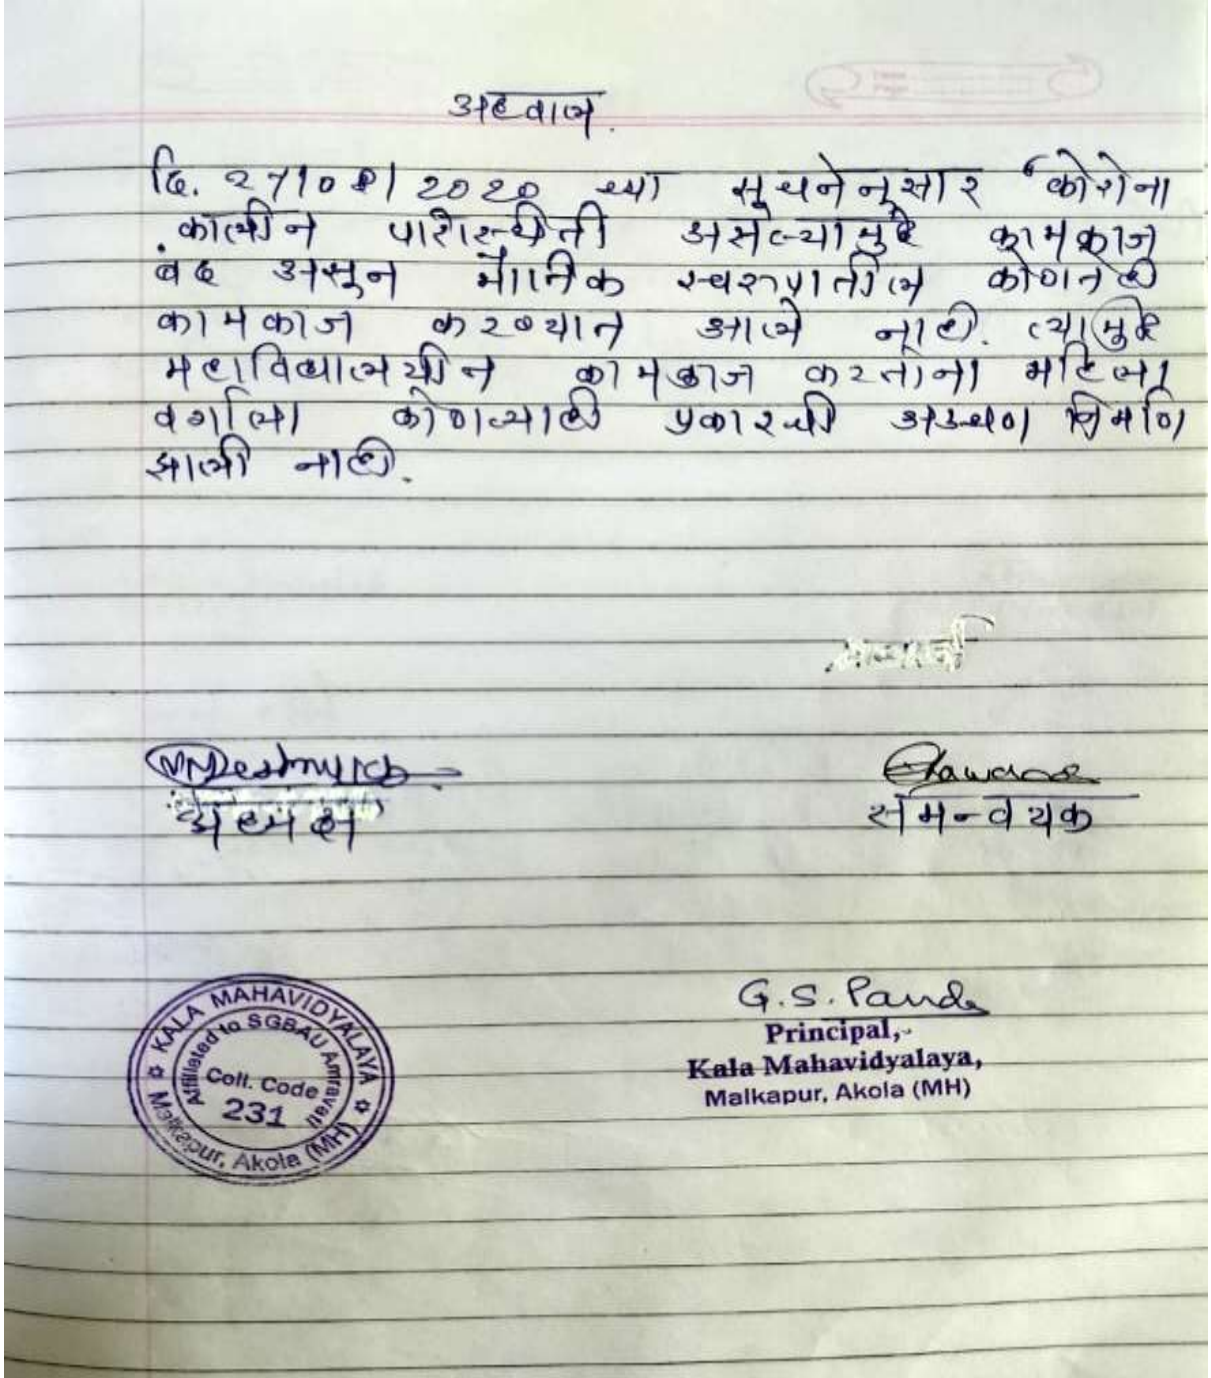 अहवाल.
दि. २७/०८/2020 च्या सुचनेनुसार "कोरोना
कालीन परिस्थीती असल्यामुळे कामकाज
बंद असून मौखिक स्वरुपातील कोणतेही
कामकाज करण्यात आले नाही. त्यामुळे
महाविद्यालयीन कामकाज करतांना महिला
वर्गाला कोणत्याही प्रकारची अडचण निर्माण
झाली नाही.
Deshmukh
अध्यक्ष
समन्वयक
KALA MAHAVIDYALAYA
Affiliated to SGBAU Amravati
Coll. Code
231
Malkapur, Akola (MH)
G.S. Pande
Principal,
Kala Mahavidyalaya,
Malkapur, Akola (MH)